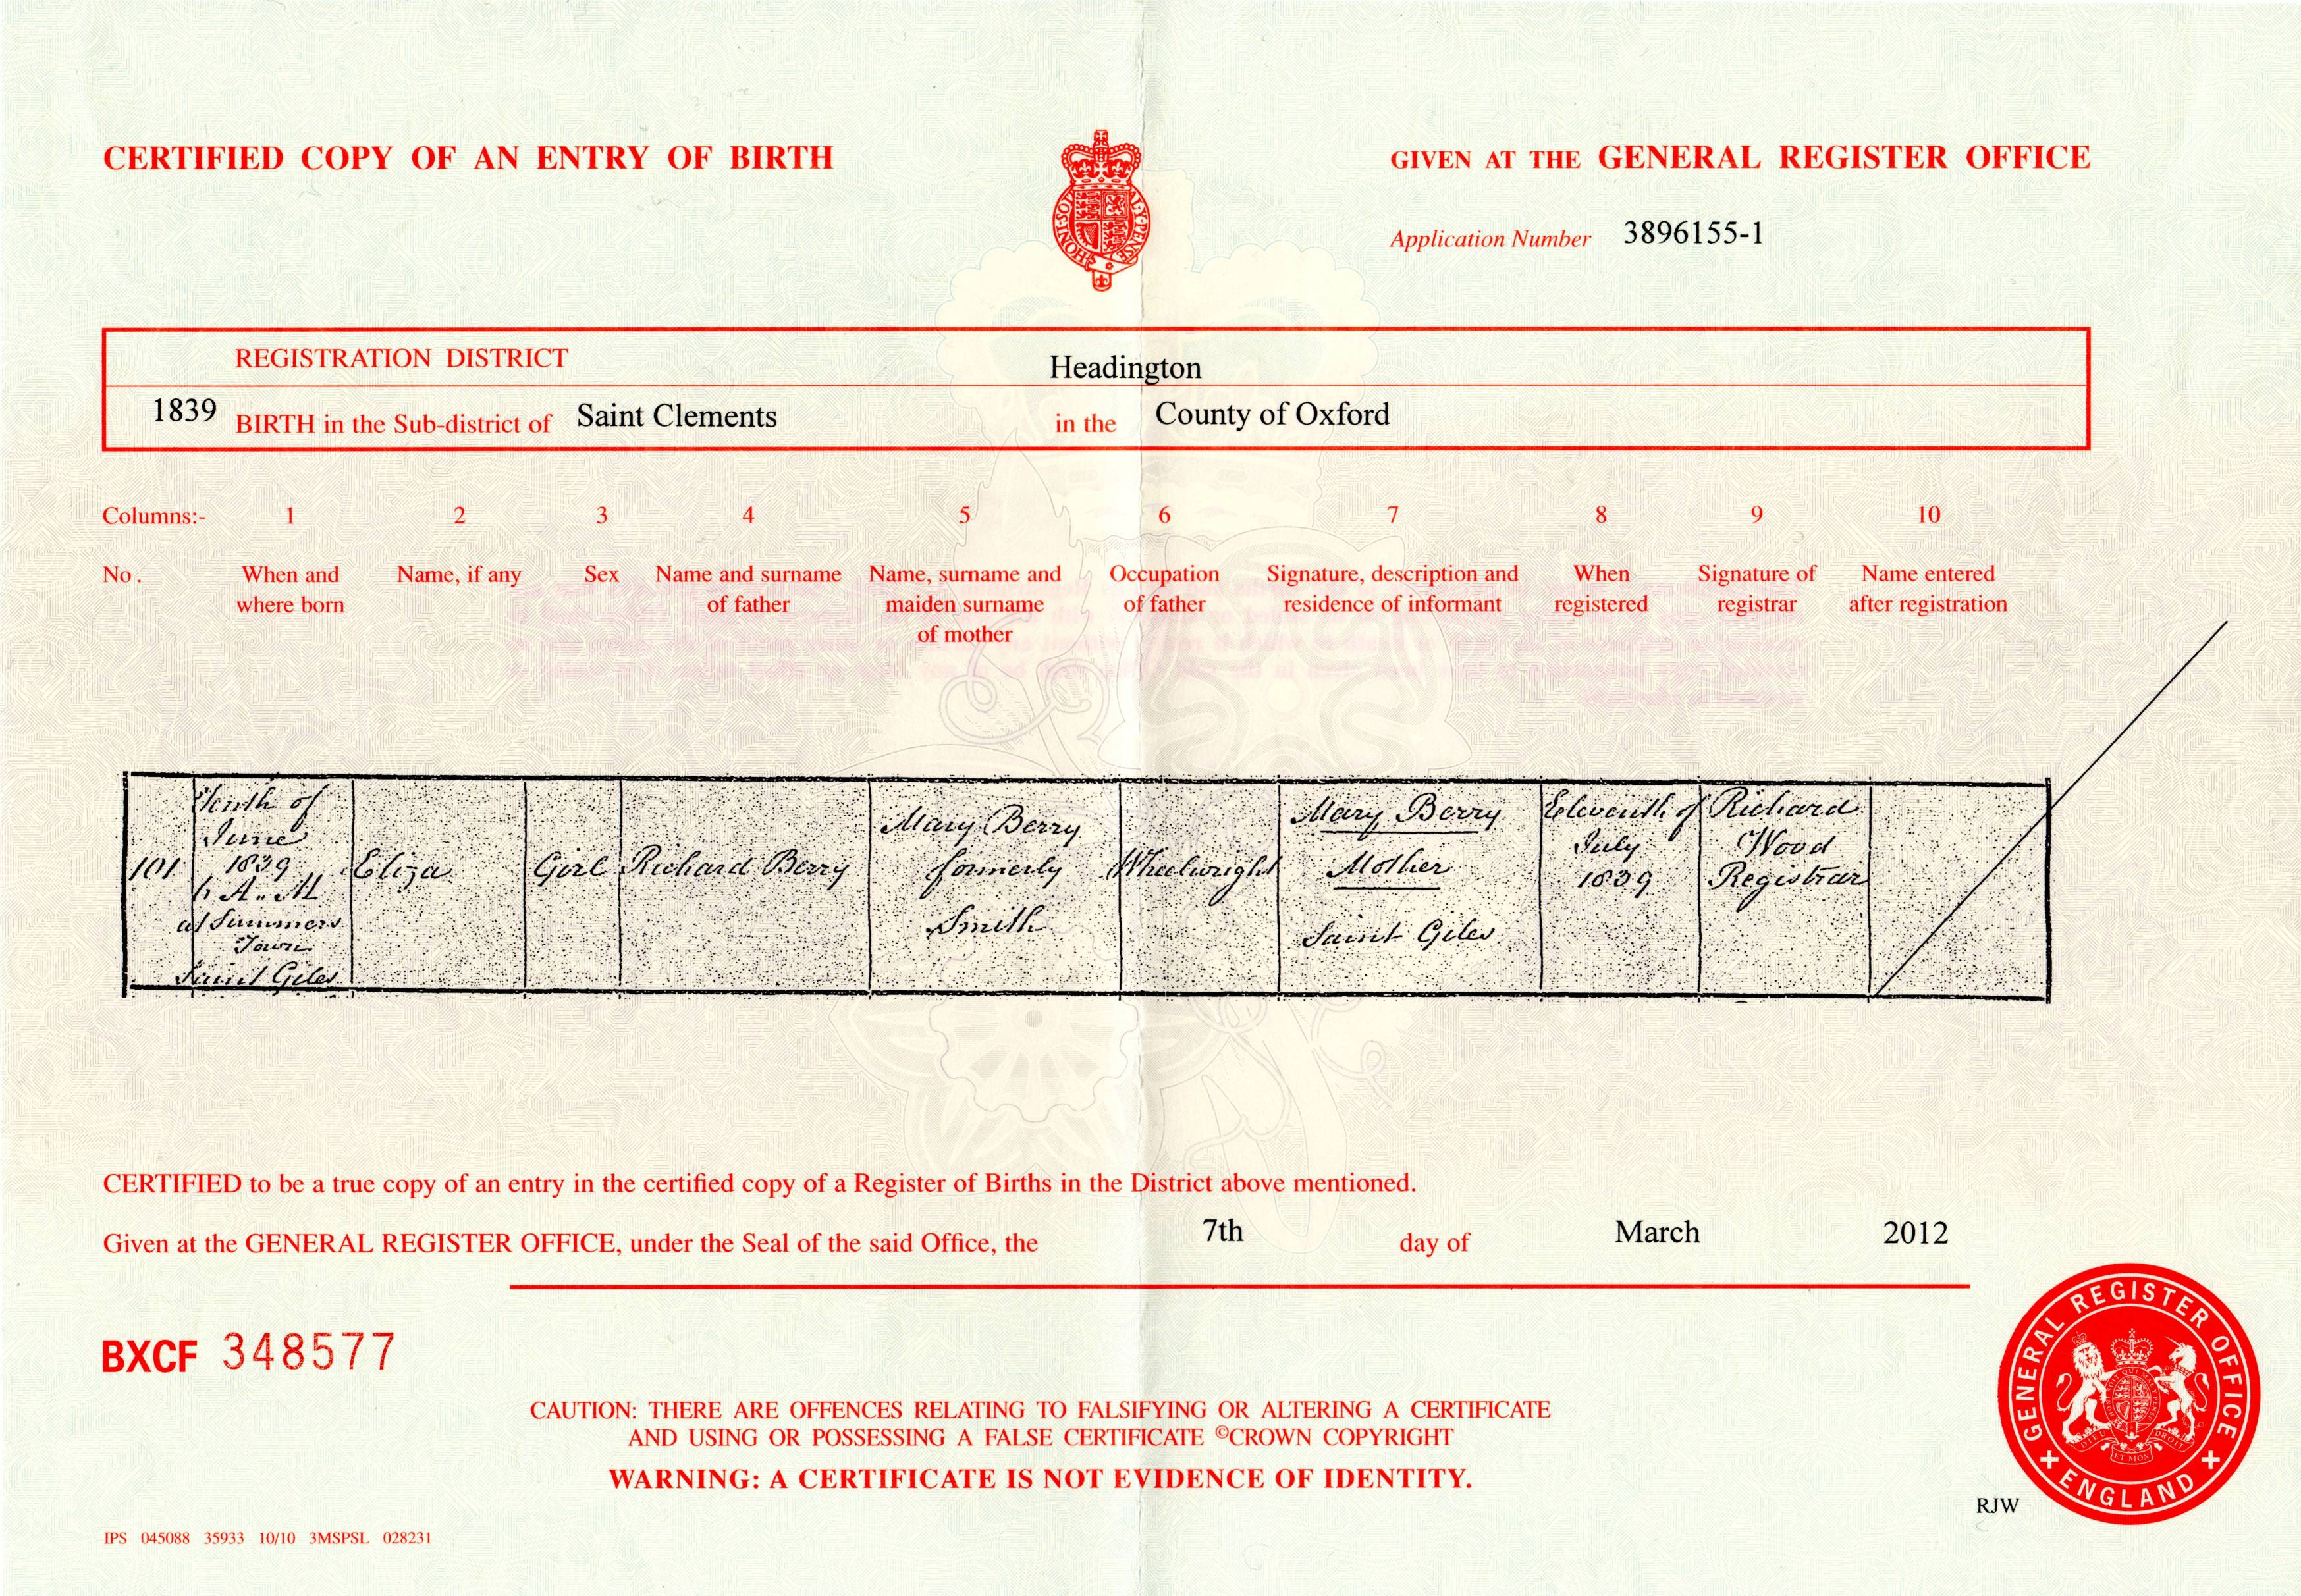 CERTIFIED COPY OF AN ENTRY OF BIRTH
GIVEN AT THE GENERAL REGISTER OFFICE
HONI·SOI AL·Y·PENSE
Application Number 3896155-1
REGISTRATION DISTRICT Headington
1839 BIRTH in the Sub-district of Saint Clements in the County of Oxford
Columns:- 1 2 3 4 5 6 7 8 9 10
No. When and Name, if any Sex Name and surname Name, surname and Occupation Signature, description and When Signature of Name entered
where born of father maiden surname of father residence of informant registered registrar after registration
of mother
101
Tenth of
June
1839
A.. M
at Summers
Town
Saint Giles
Eliza
Girl
Richard Berry
Mary Berry
formerly
Smith
Wheelwright
Mary Berry
Mother
Saint Giles
Eleventh of
July
1839
Richard
Wood
Registrar
CERTIFIED to be a true copy of an entry in the certified copy of a Register of Births in the District above mentioned.
Given at the GENERAL REGISTER OFFICE, under the Seal of the said Office, the 7th day of March 2012
BXCF 348577
CAUTION: THERE ARE OFFENCES RELATING TO FALSIFYING OR ALTERING A CERTIFICATE
AND USING OR POSSESSING A FALSE CERTIFICATE ©CROWN COPYRIGHT
WARNING: A CERTIFICATE IS NOT EVIDENCE OF IDENTITY.
GENERAL REGISTER OFFICE
ENGLAND
DIEU ET MON DROIT
RJW
IPS 045088 35933 10/10 3MSPSL 028231